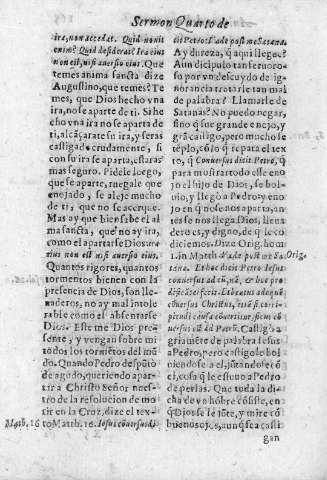 Sermon Quarto de
ira, non accedat. Quid non it
enim? Quid desideras? Ira eius
non est, nisi auersio eius. Que
temes anima sancta dize
Augustino, que temes? Te
mes, que Dios hecho vna
ira, no se aparte de ti. Si he
cho vna ira no se aparta de
ti, alcãçarate su ira, y seras
castigada crudamente, si
con su ira se aparta, estaras
mas seguro. Pidele luego,
que se aparte, ruegale que
enojado, se aleje mucho
de ti, que no se acerque.
Mas ay que bien sabe el al
ma sancta, que no ay ira,
como el apartarse Dios:
ius non est nisi auersio eius.
Quantos rigores, quantos
tormentos bienen con la
presencia de Dios, son lle-
naderos, no ay mal intole
rable como el absentarse
Dios. Este me Dios pre-
sente, y vengan sobre mi
todos los tormẽtos del mũ
do. Quando Pedro despùto
de agudo, queriendo apar
tir a Christo Señor nues-
tro de la resolucion de mo
rir en la Cruz, dize el tex-
Math. 16 to Matth. 16. Iesus cõuersus di
xit Petro: Vade post me Satana.
Ay dureza, q̃ aqui llegue?
A un dicipulo tan feruoro-
so por vn descuydo de ig-
norancia tratarle tan mal
de palabra? Llamarle de
Satanas? No puedo negar,
sino q̃ fue grande enojo, y
grã castigo, pero mucho le
tẽplo, cõ lo q̃ repara el tex
to: que Conuersus dicit Petro, q̃
para mostrar todo este eno
jo el hijo de Dios, se bol-
uio, y llegò a Pedro y eno
jo en q̃ no se nos aparta, an
tes se nos llega Dios, llena
dero es, y digno, de que le co
diciemos. Dize Orig. hom.
1. in Matth. Vade post me Sa Orig.
tana. Et huc dicit Petro Iesus
conuersus Christus,
grãmẽte de palabra Iesus
a Pedro, pero castigole bol
niendose a el, jũtãdose cõ
el, cosa q̃ le estuuo a Pedro
de perlas. Que toda la di-
cha de vn hõbre cõsiste, en
q̃ Dios se le jũte, y mire cõ
buenos ojos, aun q̃ sea casti
gan